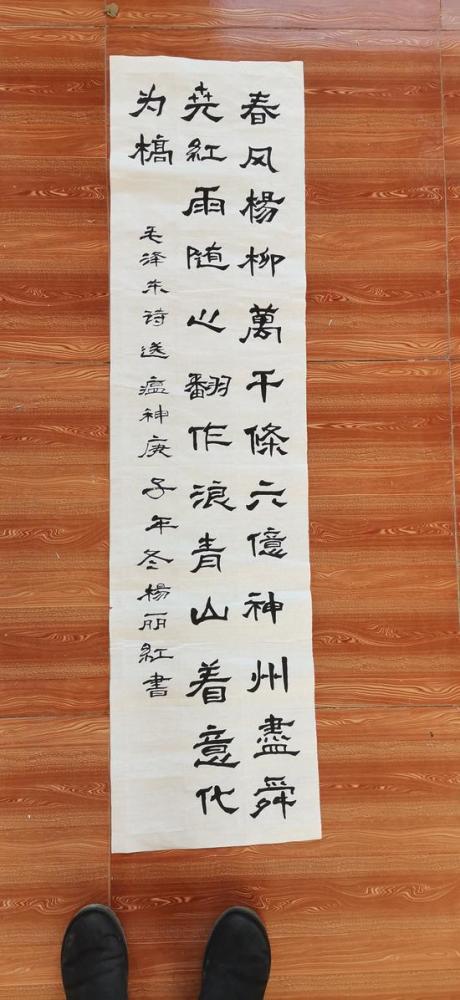 春风楊柳萬千條六億神州盡舜
尧紅雨随心翻作浪青山着意化
为橋
毛泽东诗送瘟神庚子年冬楊丽紅書